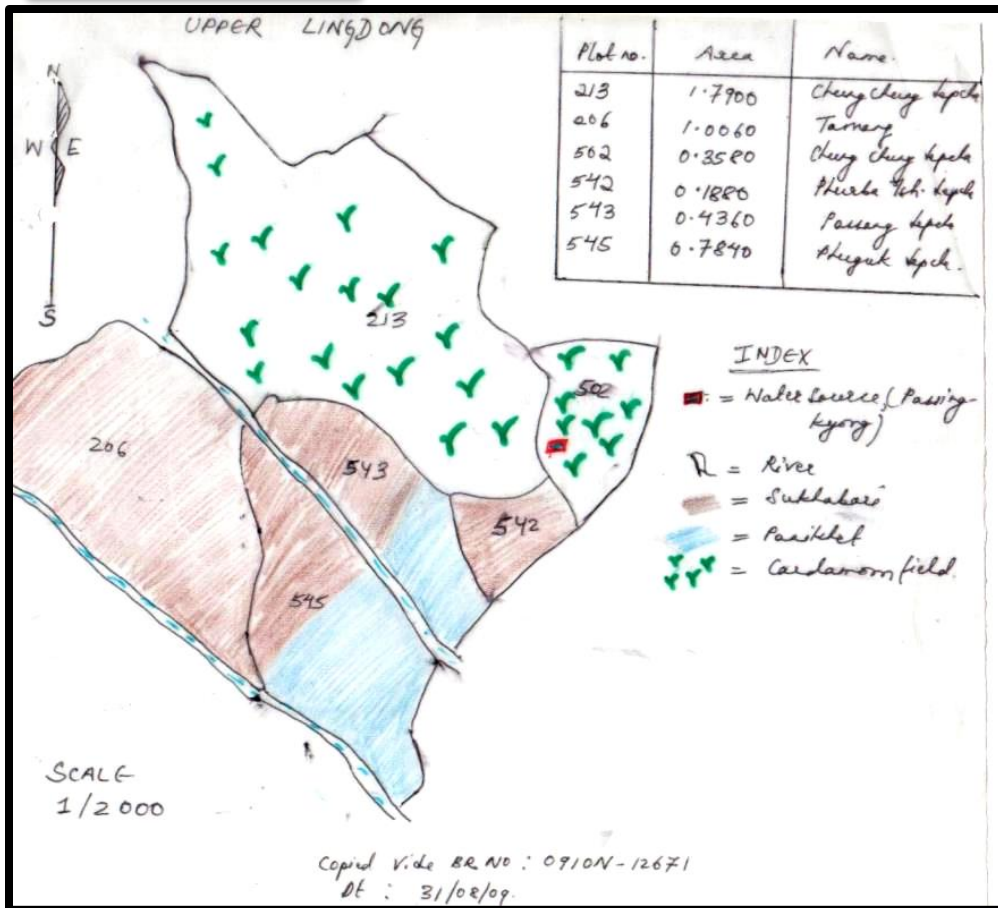 UPPER LINGDONG
Plot no. Area Name.
213 1.7900 Chung Chung Lepcha
206 1.0060 Tamang
502 0.3580 Chung Chung Lepcha
542 0.1880 Phurba Tsh. Lepcha
543 0.4360 Passang Lepcha
545 0.7840 Phuguk Lepcha.
N
W E
S
213
502
206
543
542
545
INDEX
= Water Source, (Passing-
kyong)
= River
= Sukhabari
= Panikhet
= Cardamom field.
SCALE
1/2000
Copied Vide BR NO : 0910N-12671
Dt : 31/08/09.